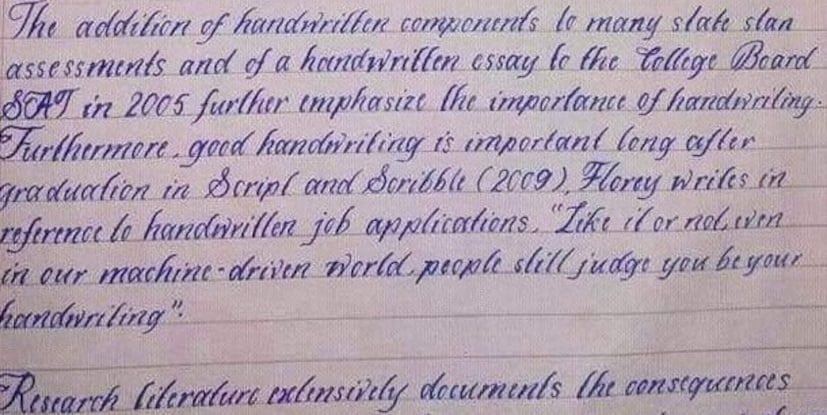 The addition of handwritten components to many state stan
assessments and of a handwritten essay to the College Board
SAT in 2005 further emphasize the importance of handwriting.
Furthermore, good handwriting is important long after
graduation in Script and Scribble (2009), Florey writes in
reference to handwritten job applications, "Like it or not, even
in our machine-driven world, people still judge you be your
handwriting".
Research literature extensively documents the consequences